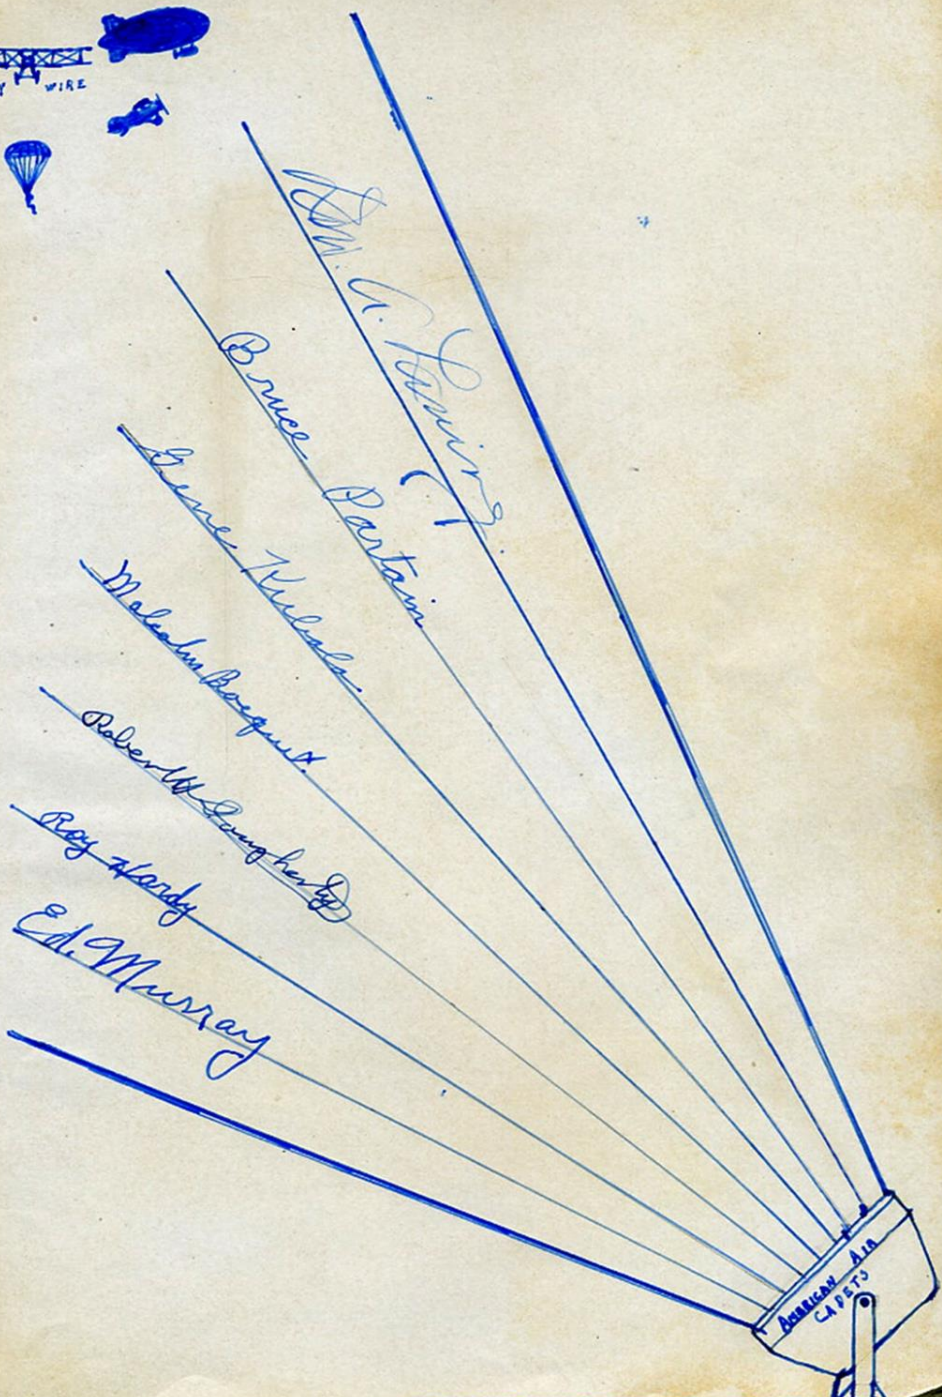 WIRE
Wm. A. Loving.
Bruce Partain
Gene Kubala
Malcolm Bocquet
Robert W Dougherty
Roy Hardy
Ed. Murray
AMERICAN AIR
CADETS